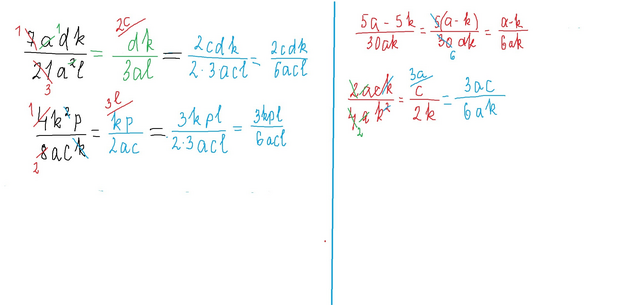 7adk/21a²l = dk/3al (2c) = 2cdk/2·3acl = 2cdk/6acl
4k²p/8ack = kp/2ac (3l) = 3kpl/2·3acl = 3kpl/6acl
5a-5k/30ak = 5(a-k)/30ak = a-k/6ak
2ack/4ak² = c/2k (3a) = 3ac/6ak